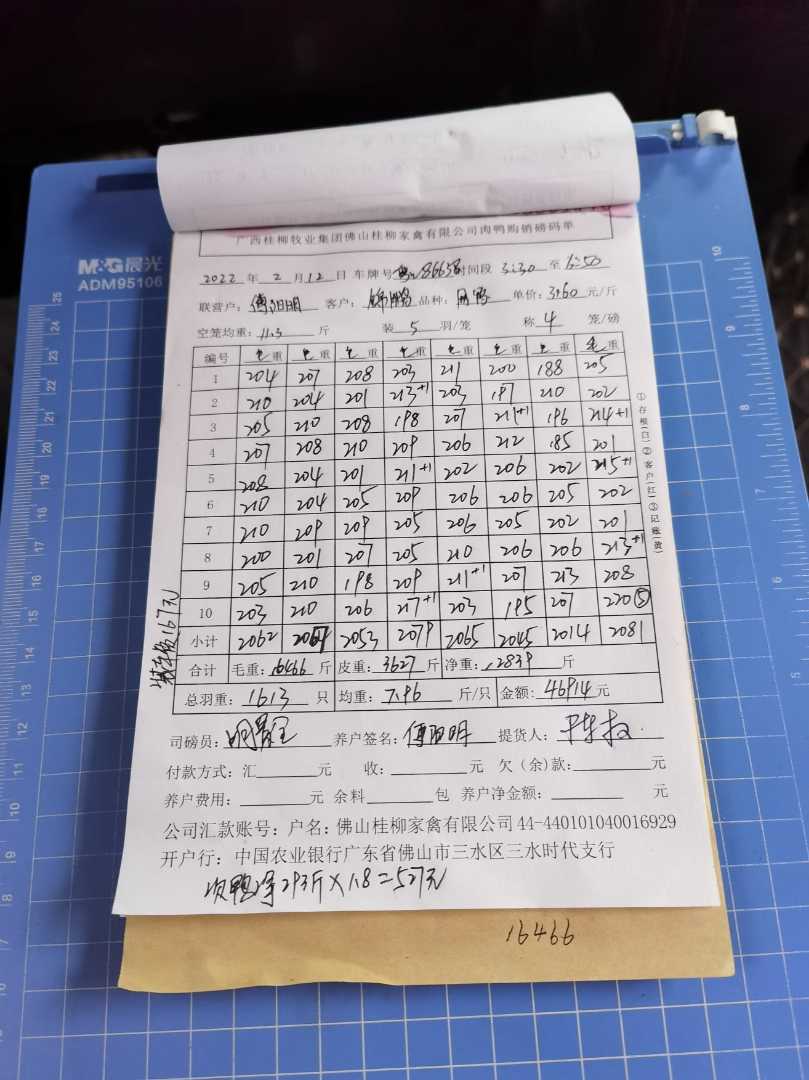 M&G晨光
ADM95106
广西桂柳牧业集团佛山桂柳家禽有限公司肉鸭购销磅码单
2022 年 2 月 12 日 车牌号 86658 时间段 3:30 至 6:50
联营户: 傅阳明 客户: 锦鹏 品种: 单价: 3.60 元/斤
空笼均重: 11.3 斤 装 5 羽/笼 称 4 笼/磅
编号 毛重 毛重 毛重 毛重 毛重 毛重 毛重 毛重
1 204 207 208 203 211 200 188 205
2 210 204 201 213+1 203 197 210 202
3 205 210 208 198 207 211+1 196 214+1
4 207 208 210 209 206 212 185 201
5 208 204 201 211+1 202 206 202 215+1
6 210 204 205 209 206 206 205 202
7 210 209 209 205 206 205 202 201
8 200 201 207 205 210 206 206 213+1
9 205 210 198 209 211+1 207 213 208
10 203 210 206 217+1 203 195 207 220⑤
小计 2062 2067 2053 2079 2065 2045 2014 2081
合计 毛重: 16466 斤 皮重: 3627 斤 净重: 12839 斤
总羽重: 1613 只 均重: 7.96 斤/只 金额: 46914 元
司磅员: 养户签名: 傅阳明 提货人:
付款方式: 汇 元 收: 元 欠(余)款: 元
养户费用: 元 余料 包 养户净金额: 元
公司汇款账号: 户名: 佛山桂柳家禽有限公司 44-440101040016929
开户行: 中国农业银行广东省佛山市三水区三水时代支行
次鸭净293斤×1.8=527元
16466
①存根(白)②客户(红)③记账(黄)
装车费167元